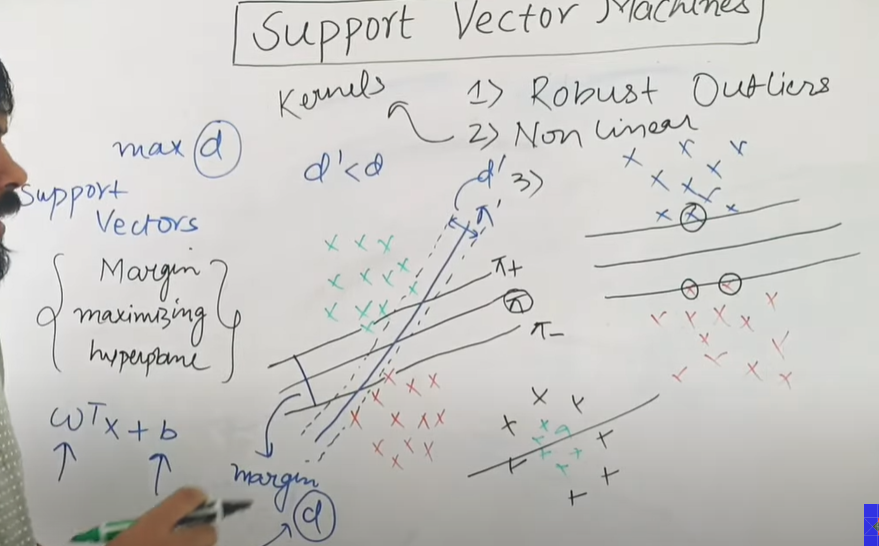 Support Vector Machines
Kernels
1) Robust Outliers
2) Non linear
3)
max d
d' < d
d'
π'
Support
Vectors
Margin
maximizing
hyperplane
π+
π
π-
wTx + b
margin
d